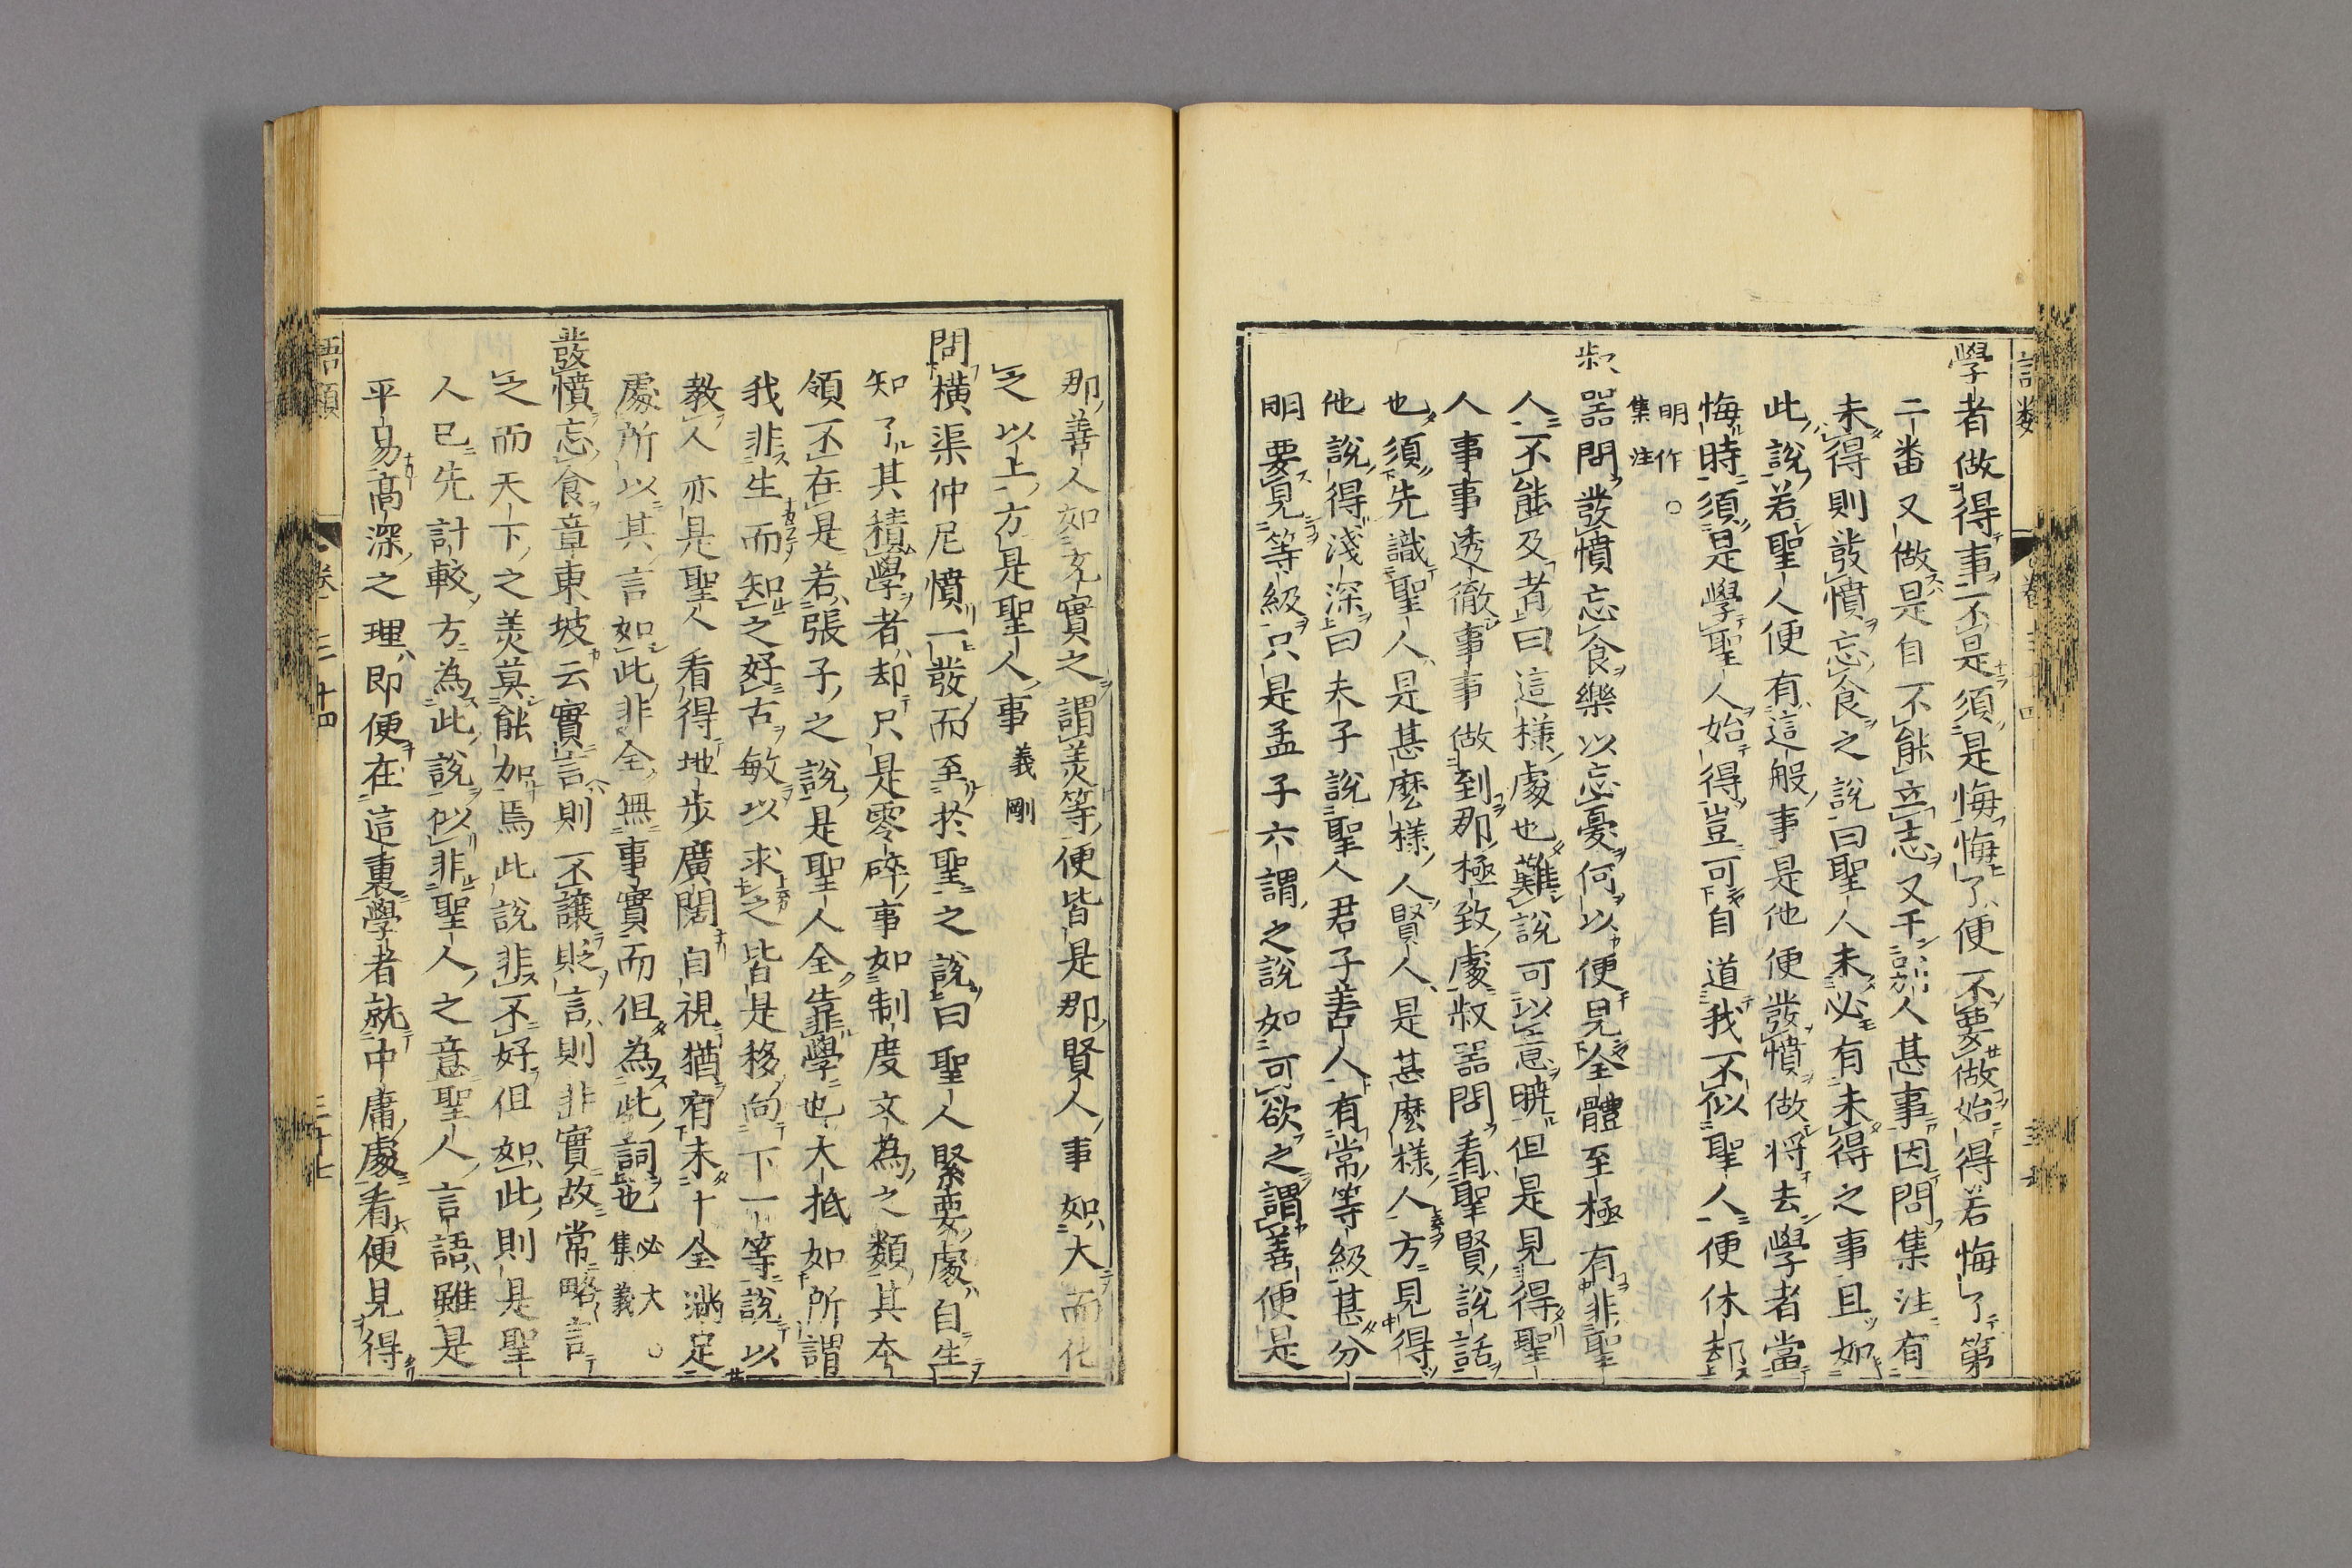 學者做得事不是須是悔悔了便不要做始得若悔了第
二番又做是自不能立志又干別人甚事因問集注有
未得則發憤忘食之說曰聖人未必有未得之事且如
此說若聖人便有這般事是他便發憤做将去學者當
悔時須是學聖人始得豈可自道我不似聖人便休却
明作○
集注
叔器問發憤忘食樂以忘憂何以便見全體至極有非聖
人不能及者曰這様處也難說可以意曉但是見得聖
人事事透徹事事做到那極致處叔器問看聖賢說話
也須先識聖人是甚麽様人賢人是甚麽様人方見得
他說得淺深曰夫子說聖人君子善人有常等級甚分
明要見等級只是孟子六謂之說如可欲之謂善便是
那善人如充實之謂羙等便皆是那賢人事如大而化
之以上方是聖人事 義剛
問横渠仲尼憤一發而至於聖之說曰聖人緊要處自生
知了其積學者却只是零碎事如制度文為之類其本
領不在是若張子之說是聖人全靠學也大抵如所謂
我非生而知之好古敏以求之皆是移向下一等說以
教人亦是聖人看得地步廣闊自視猶有未十全滿足
處所以其言如此非全無事實而但為此詞也 必大○
集義
發憤忘食章東坡云實言則不讓貶言則非實故常略言
之而天下之羙莫能加焉此說非不好但如此則是聖
人已先計較方為此說似非聖人之意聖人言語雖是
平易高深之理即便在這裏學者就中庸處看便見得
語類
卷三十四
三十七